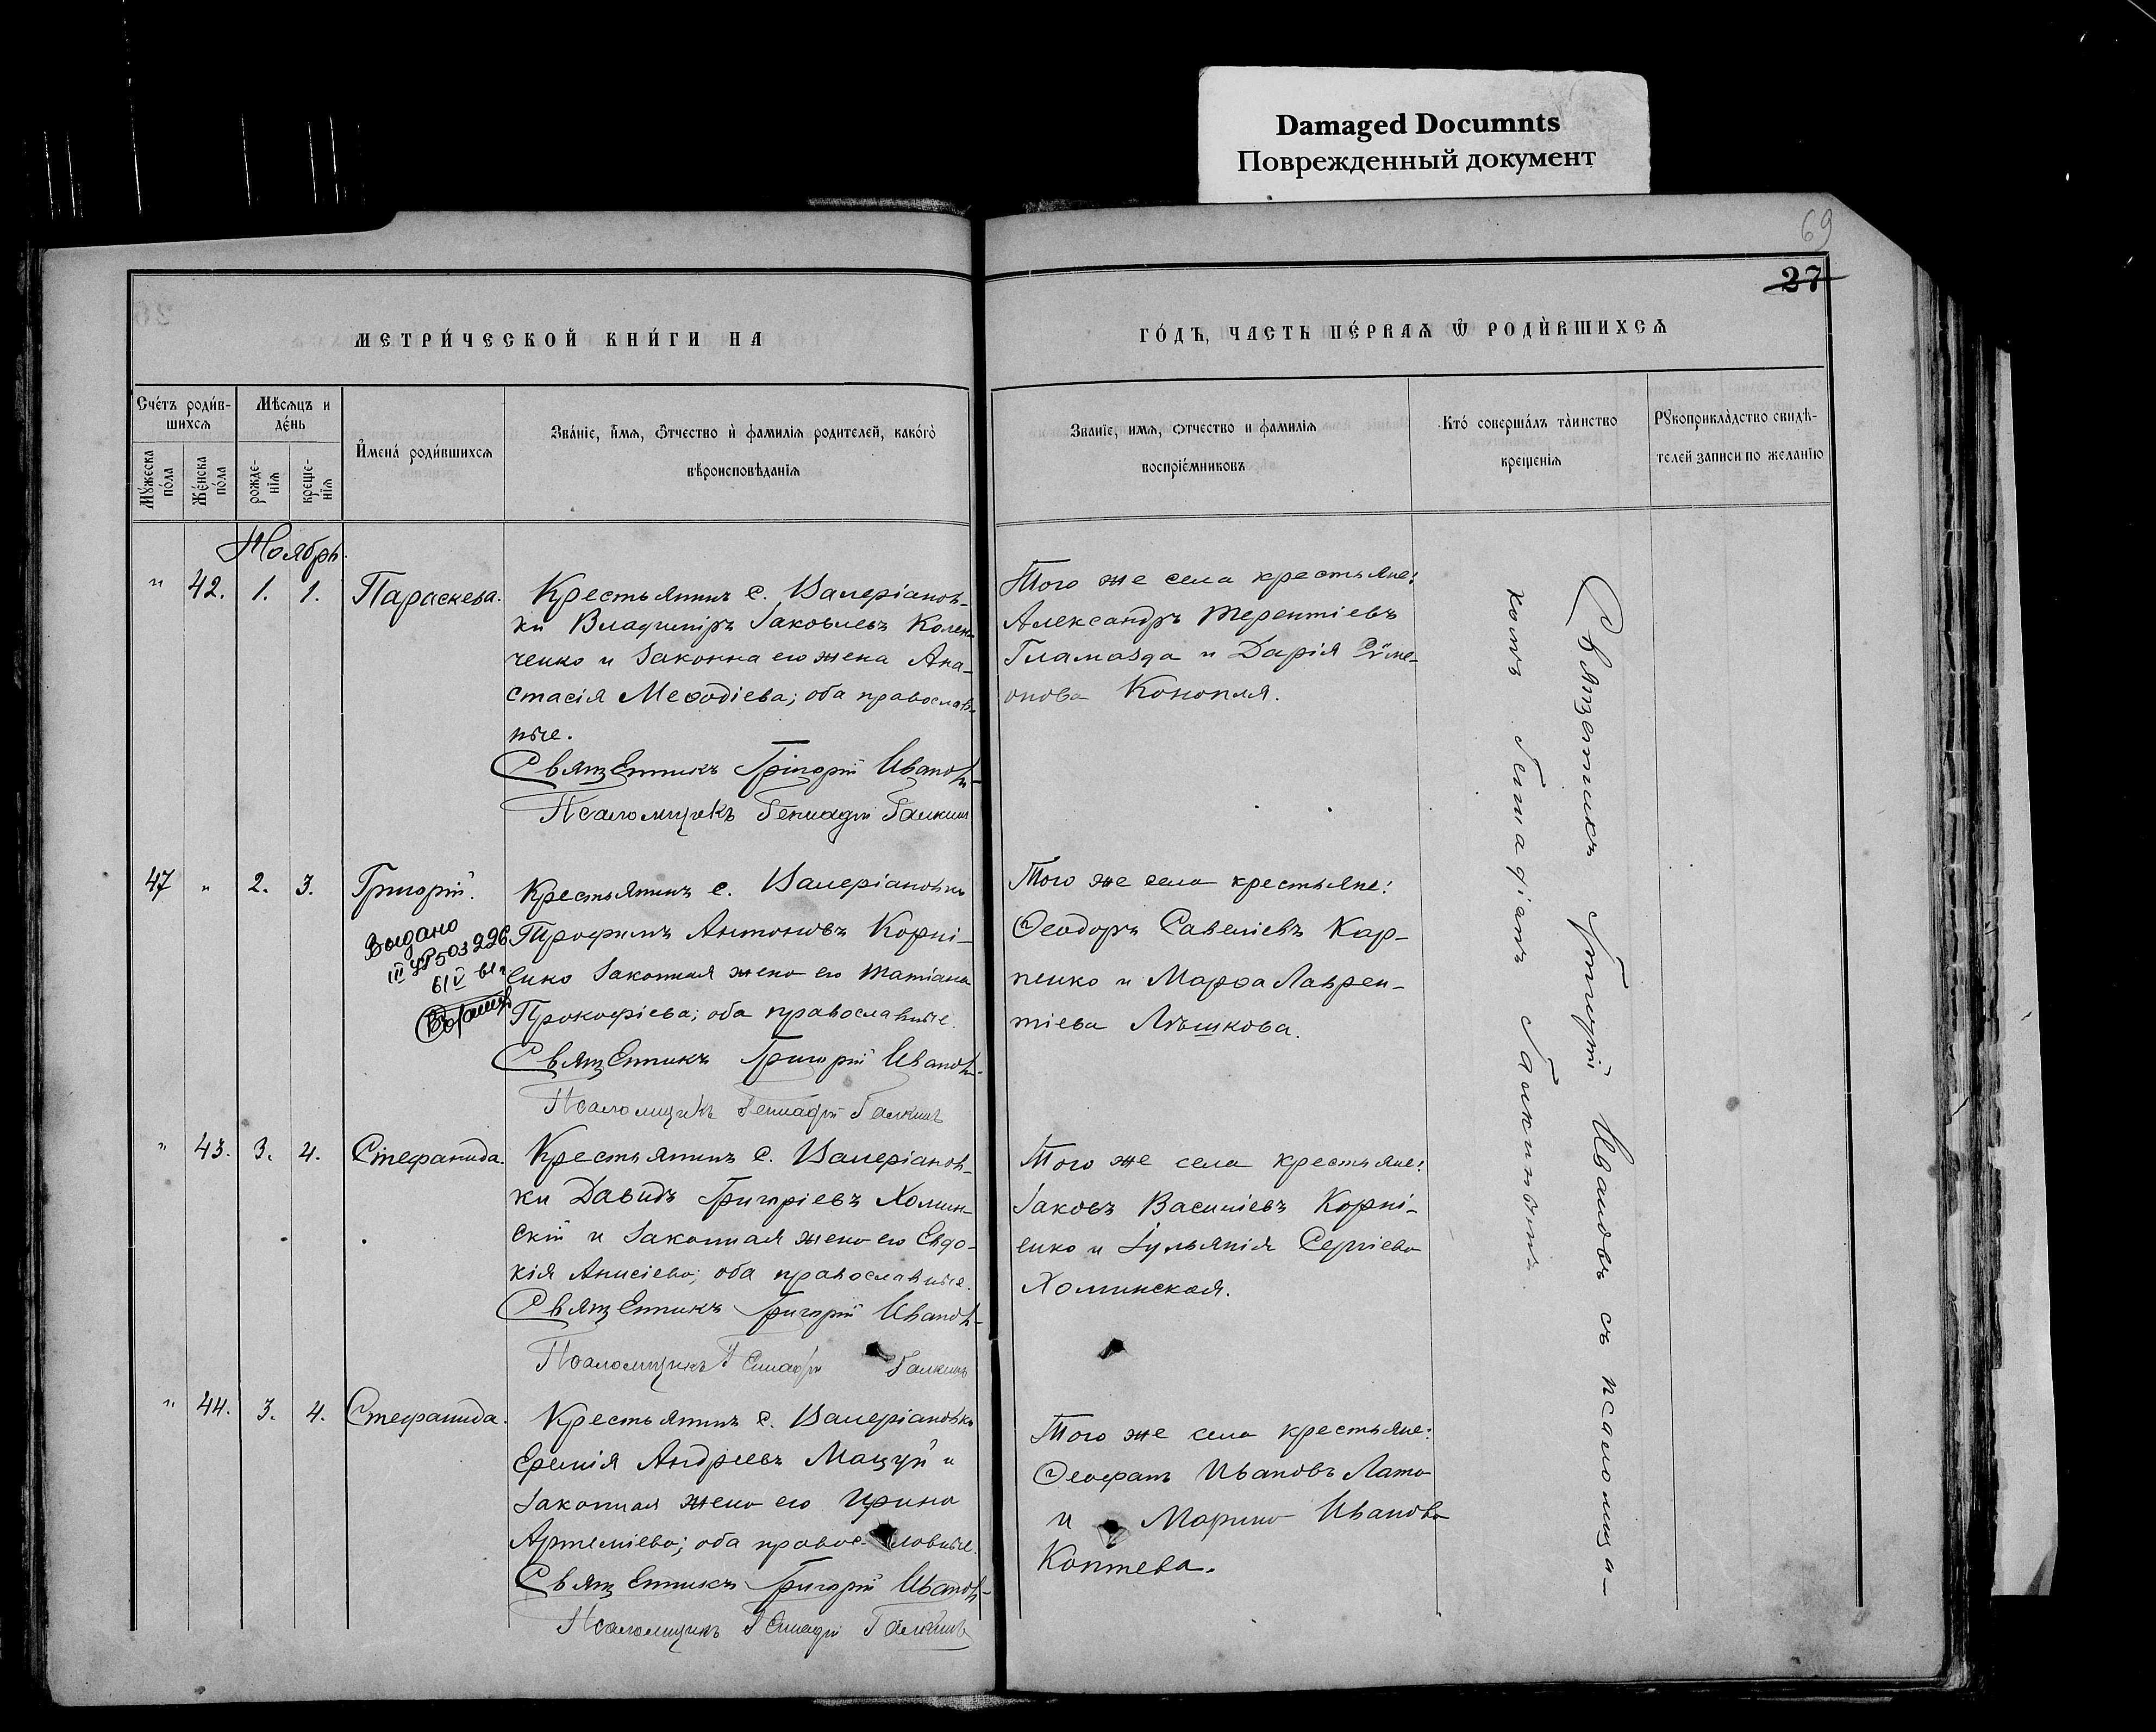 Damaged Documnts
Поврежденный документ
69
27
МЕТРИ́ЧЕСКОЙ КНИ́ГИ НА
ГО́ДЪ, ЧАСТЬ ПЕ́РВАѦ Ѿ РОДИ́ВШИХСѦ
Сче́тъ роди́в-
шихсѧ
Мѣсѧцъ и
де́нь
Му́жеска
по́ла
Же́нска
по́ла
рожде-
нїѧ
креще-
нїѧ
И҆мена́ роди́вшихсѧ
Зва́нїе, и҆́мѧ, ѻ҆́тчество и҆ фамилїѧ родителей, како́гѡ
вѣроисповѣданїѧ
Званїе, имѧ, ѻтчество и фамилїѧ
воспрїе́мниковъ
Кто́ соверша́лъ та̀инство
крещенїѧ
Рꙋкоприкла̀дство свидѣ-
телей записи по желанїю
Ноябрь.
" 42. 1. 1. Параскева.
Крестьянинъ с. Валеріанов-
ки Владиміръ Іаковлевъ
ченко и законна его жена Ана-
стасія Меѳодіева; оба православ-
ные.
Священникъ Григорій Ивановъ
Псаломщикъ Геннадій Галкинъ
Того же села крестьяне:
Александръ Терентіевъ
Гламазда и Дарія Сѵме-
онова Конопля.
47 " 2. 3. Григорій.
Крестьянинъ с. Валеріановки
Трофимъ Антоновъ Корні-
енко законная жена его Татіана
Прокофіева; оба православные.
Священникъ Григорій Ивановъ
Псаломщикъ Геннадій Галкинъ
Выдано
III 503226
61
Того же села крестьяне:
Ѳеодоръ Савеліевъ Кар-
пенко и Марѳа Лаврен-
тіева Лѣшкова.
" 43. 3. 4. Стефанида.
Крестьянинъ с. Валеріанов-
ки Давидъ Григоріевъ Хомин-
скій и законная жена его Евдо-
кія Анисіева; оба православные.
Священникъ Григорій Ивановъ
Псаломщикъ Геннадій Галкинъ
Того же села крестьяне:
Іаковъ Василіевъ Корні-
енко и Іульянія Сергіева
Хоминская.
" 44. 3. 4. Стефанида.
Крестьянинъ с. Валеріановки
Еремія Андреевъ Мацуй и
законная жена его Ирина
Артеміева; оба православные.
Священникъ Григорій Ивановъ
Псаломщикъ Геннадій Галкинъ
Того же села крестьяне:
Ѳеофанъ Ивановъ Лата
и Марина Иванова
Коптева.
Священникъ Григорій Ивановъ съ псаломщи-
комъ Геннадіемъ Галкинымъ.